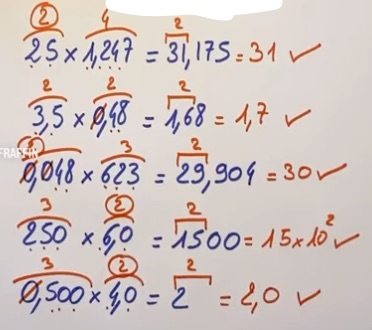 2 4 2
25 × 1,247 = 31,175 = 31 ✓
2 2 2
3,5 × 0,48 = 1,68 = 1,7 ✓
2 3 2
0,048 × 623 = 29,904 = 30 ✓
3 2 2
250 × 6,0 = 1500 = 15×10² ✓
3 2 2
0,500 × 4,0 = 2 = 2,0 ✓